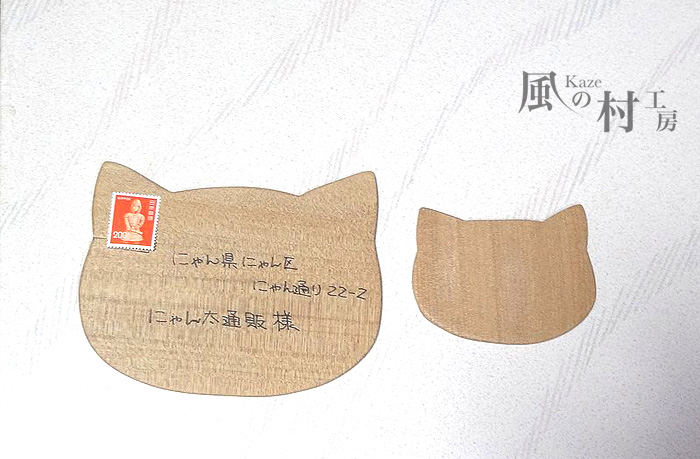 風の村工房
Kaze
NIPPON
日本郵便
200
にゃん県にゃん区
にゃん通り22-2
にゃん太通販様